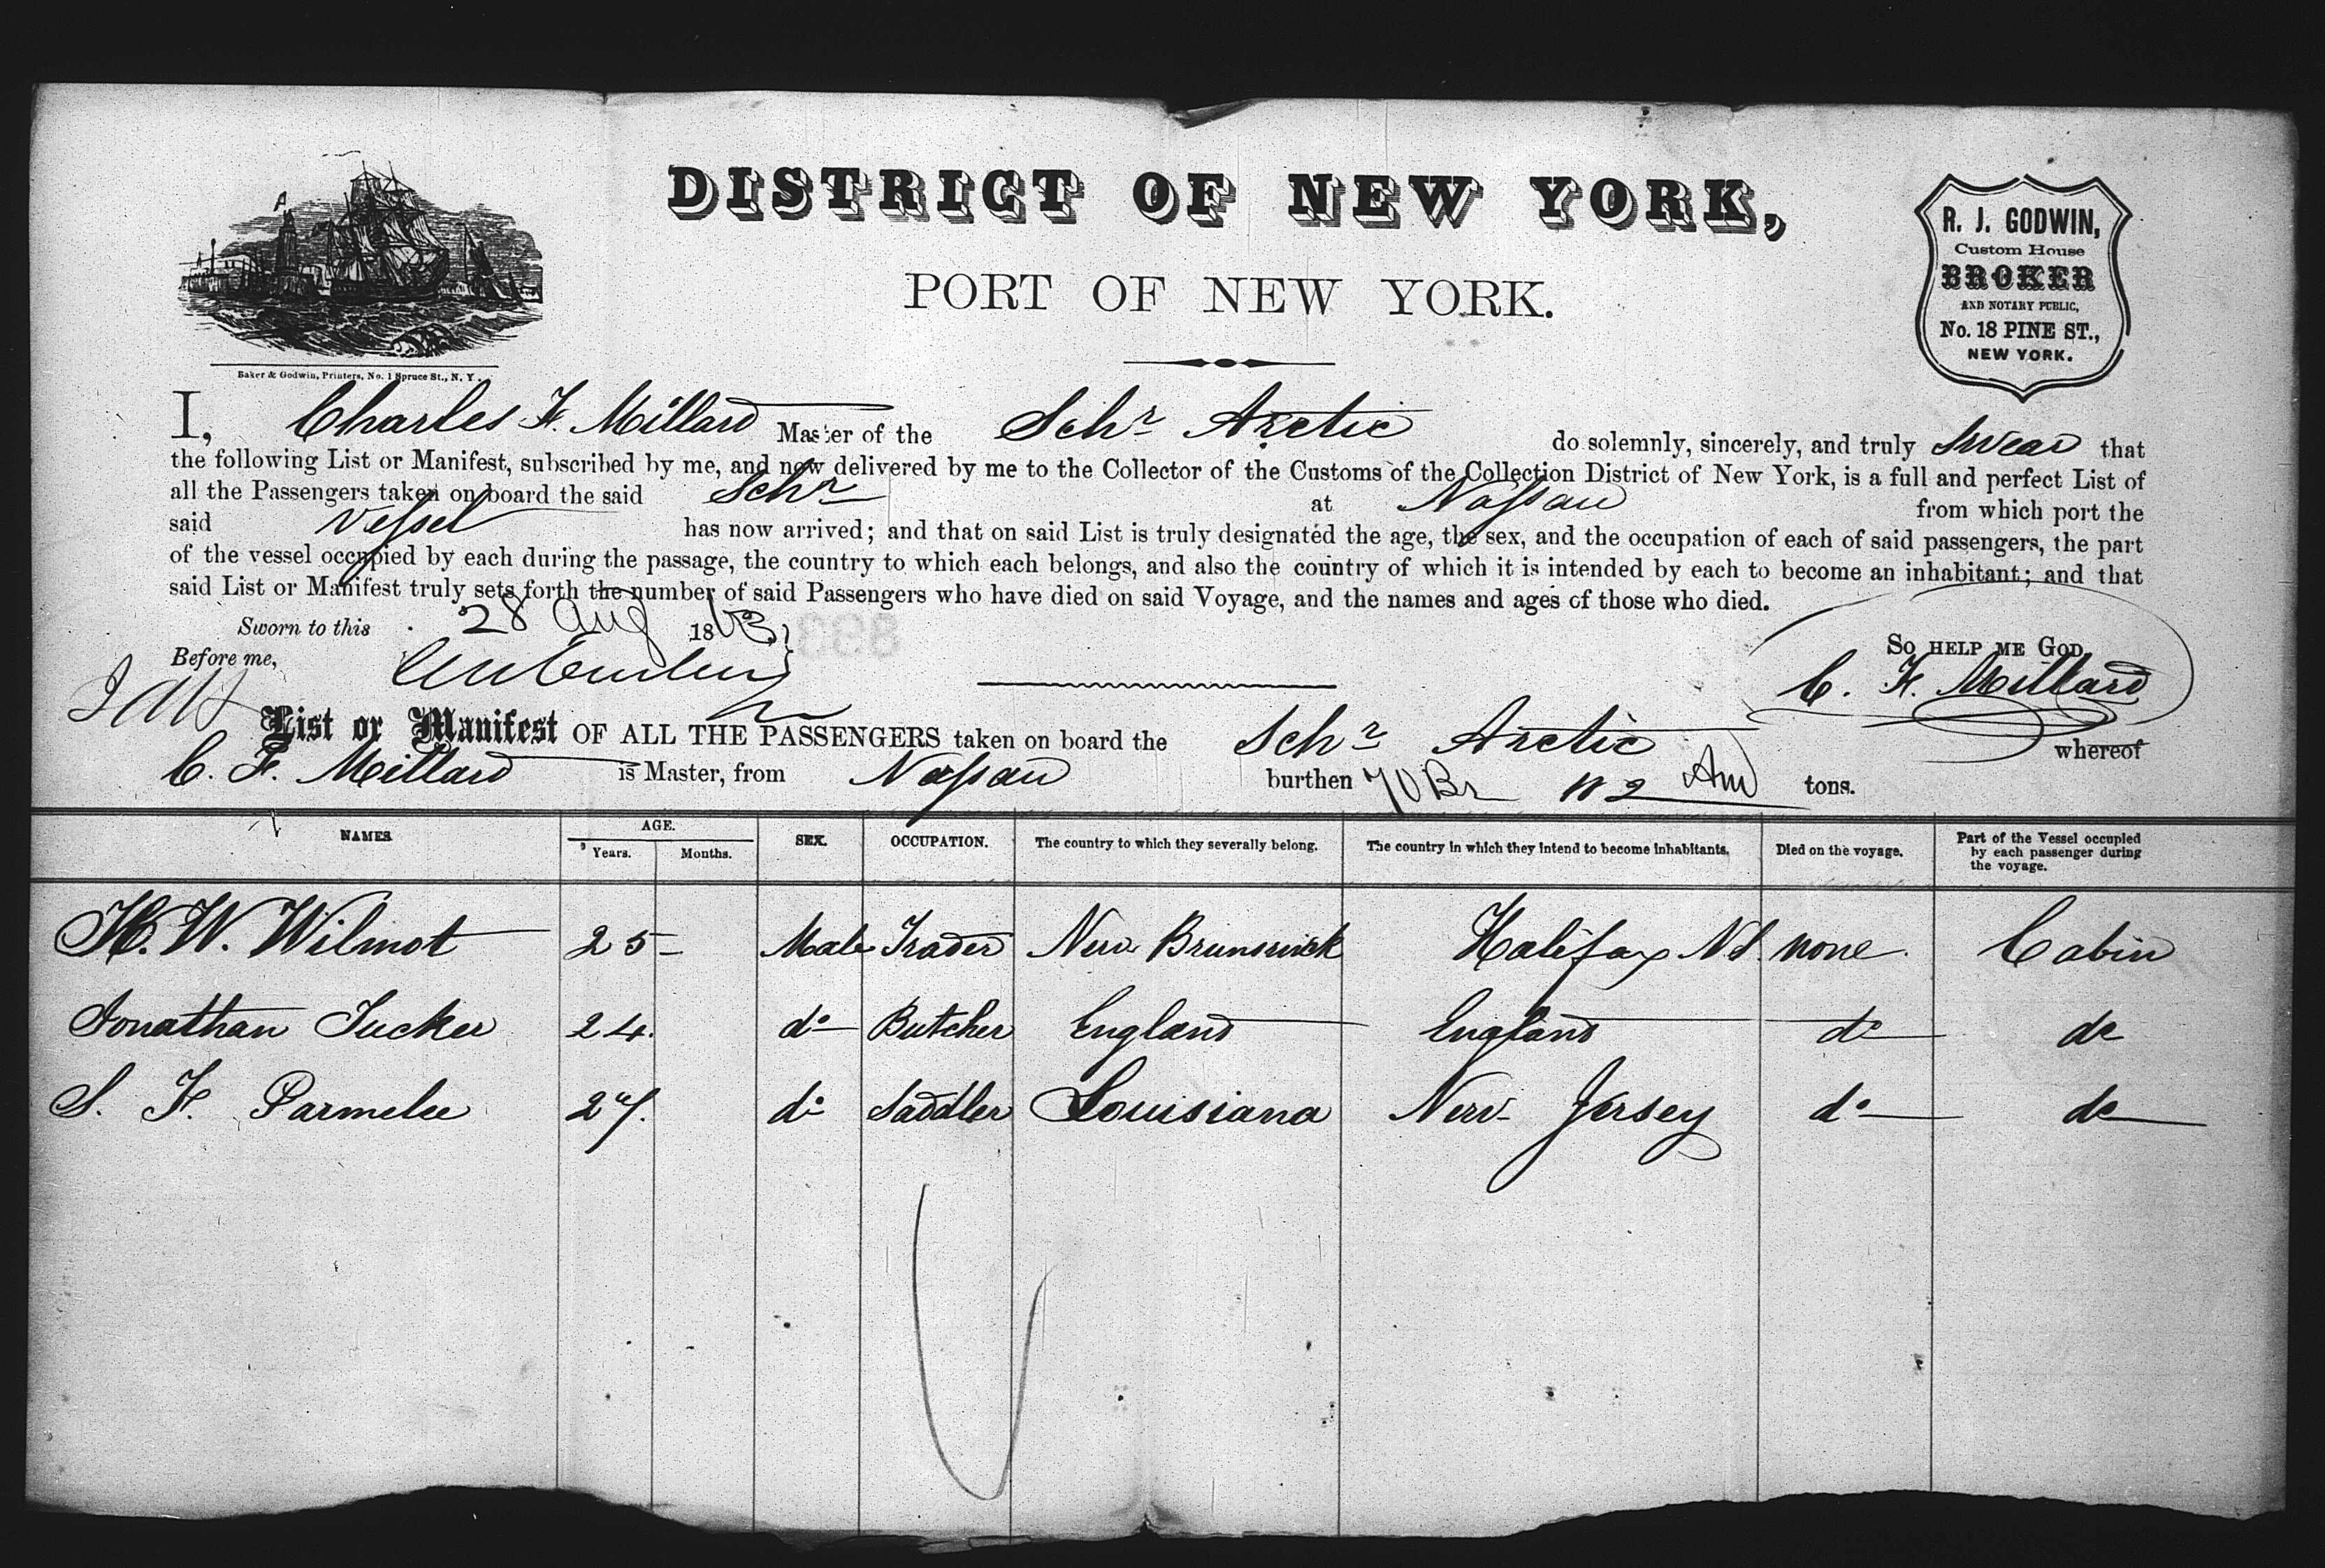 DISTRICT OF NEW YORK,
PORT OF NEW YORK.
R. J. GODWIN,
Custom House
BROKER
AND NOTARY PUBLIC,
No. 18 PINE ST.,
NEW YORK.
Baker & Godwin, Printers, No. 1 Spruce St., N. Y.
I, Charles F. Millard Master of the Schr Arctic do solemnly, sincerely, and truly swear that
the following List or Manifest, subscribed by me, and now delivered by me to the Collector of the Customs of the Collection District of New York, is a full and perfect List of
all the Passengers taken on board the said Schr at Nassau from which port the
said Vessel has now arrived; and that on said List is truly designated the age, the sex, and the occupation of each of said passengers, the part
of the vessel occupied by each during the passage, the country to which each belongs, and also the country of which it is intended by each to become an inhabitant; and that
said List or Manifest truly sets forth the number of said Passengers who have died on said Voyage, and the names and ages of those who died.
Sworn to this 28 Aug 1863
So HELP ME GOD,
Before me,
C. F. Millard
List or Manifest OF ALL THE PASSENGERS taken on board the Schr Arctic whereof
C. F. Millard is Master, from Nassau burthen 70 Br 112 Am tons.
NAMES AGE. Years. Months. SEX. OCCUPATION. The country to which they severally belong. The country in which they intend to become inhabitants. Died on the voyage. Part of the Vessel occupied by each passenger during the voyage.
H. W. Wilmot 25 Male Trader New Brunswick Halifax N.S. none Cabin
Jonathan Tucker 24. do Butcher England England do do
S. F. Parmelee 27. do Saddler Louisiana New Jersey do do